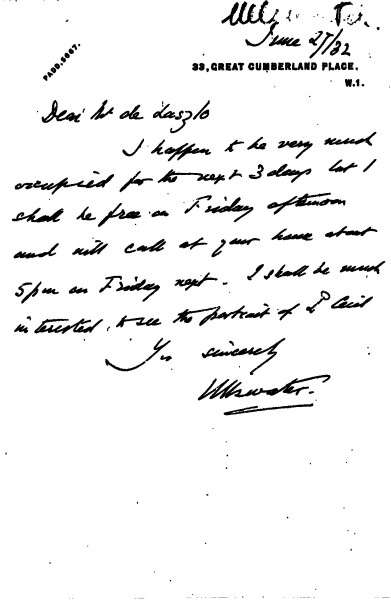 Ullswater
June 27/32
PADD. 5067.
33, GREAT CUMBERLAND PLACE,
W.1.
Dear Mr de Laszlo
I happen to be very much
occupied for the next 3 days but I
shall be free on Friday afternoon
and will call at your house about
5 pm on Friday next. I shall be much
interested, to see the portrait of Ld Cecil
Yrs sincerely
Ullswater.